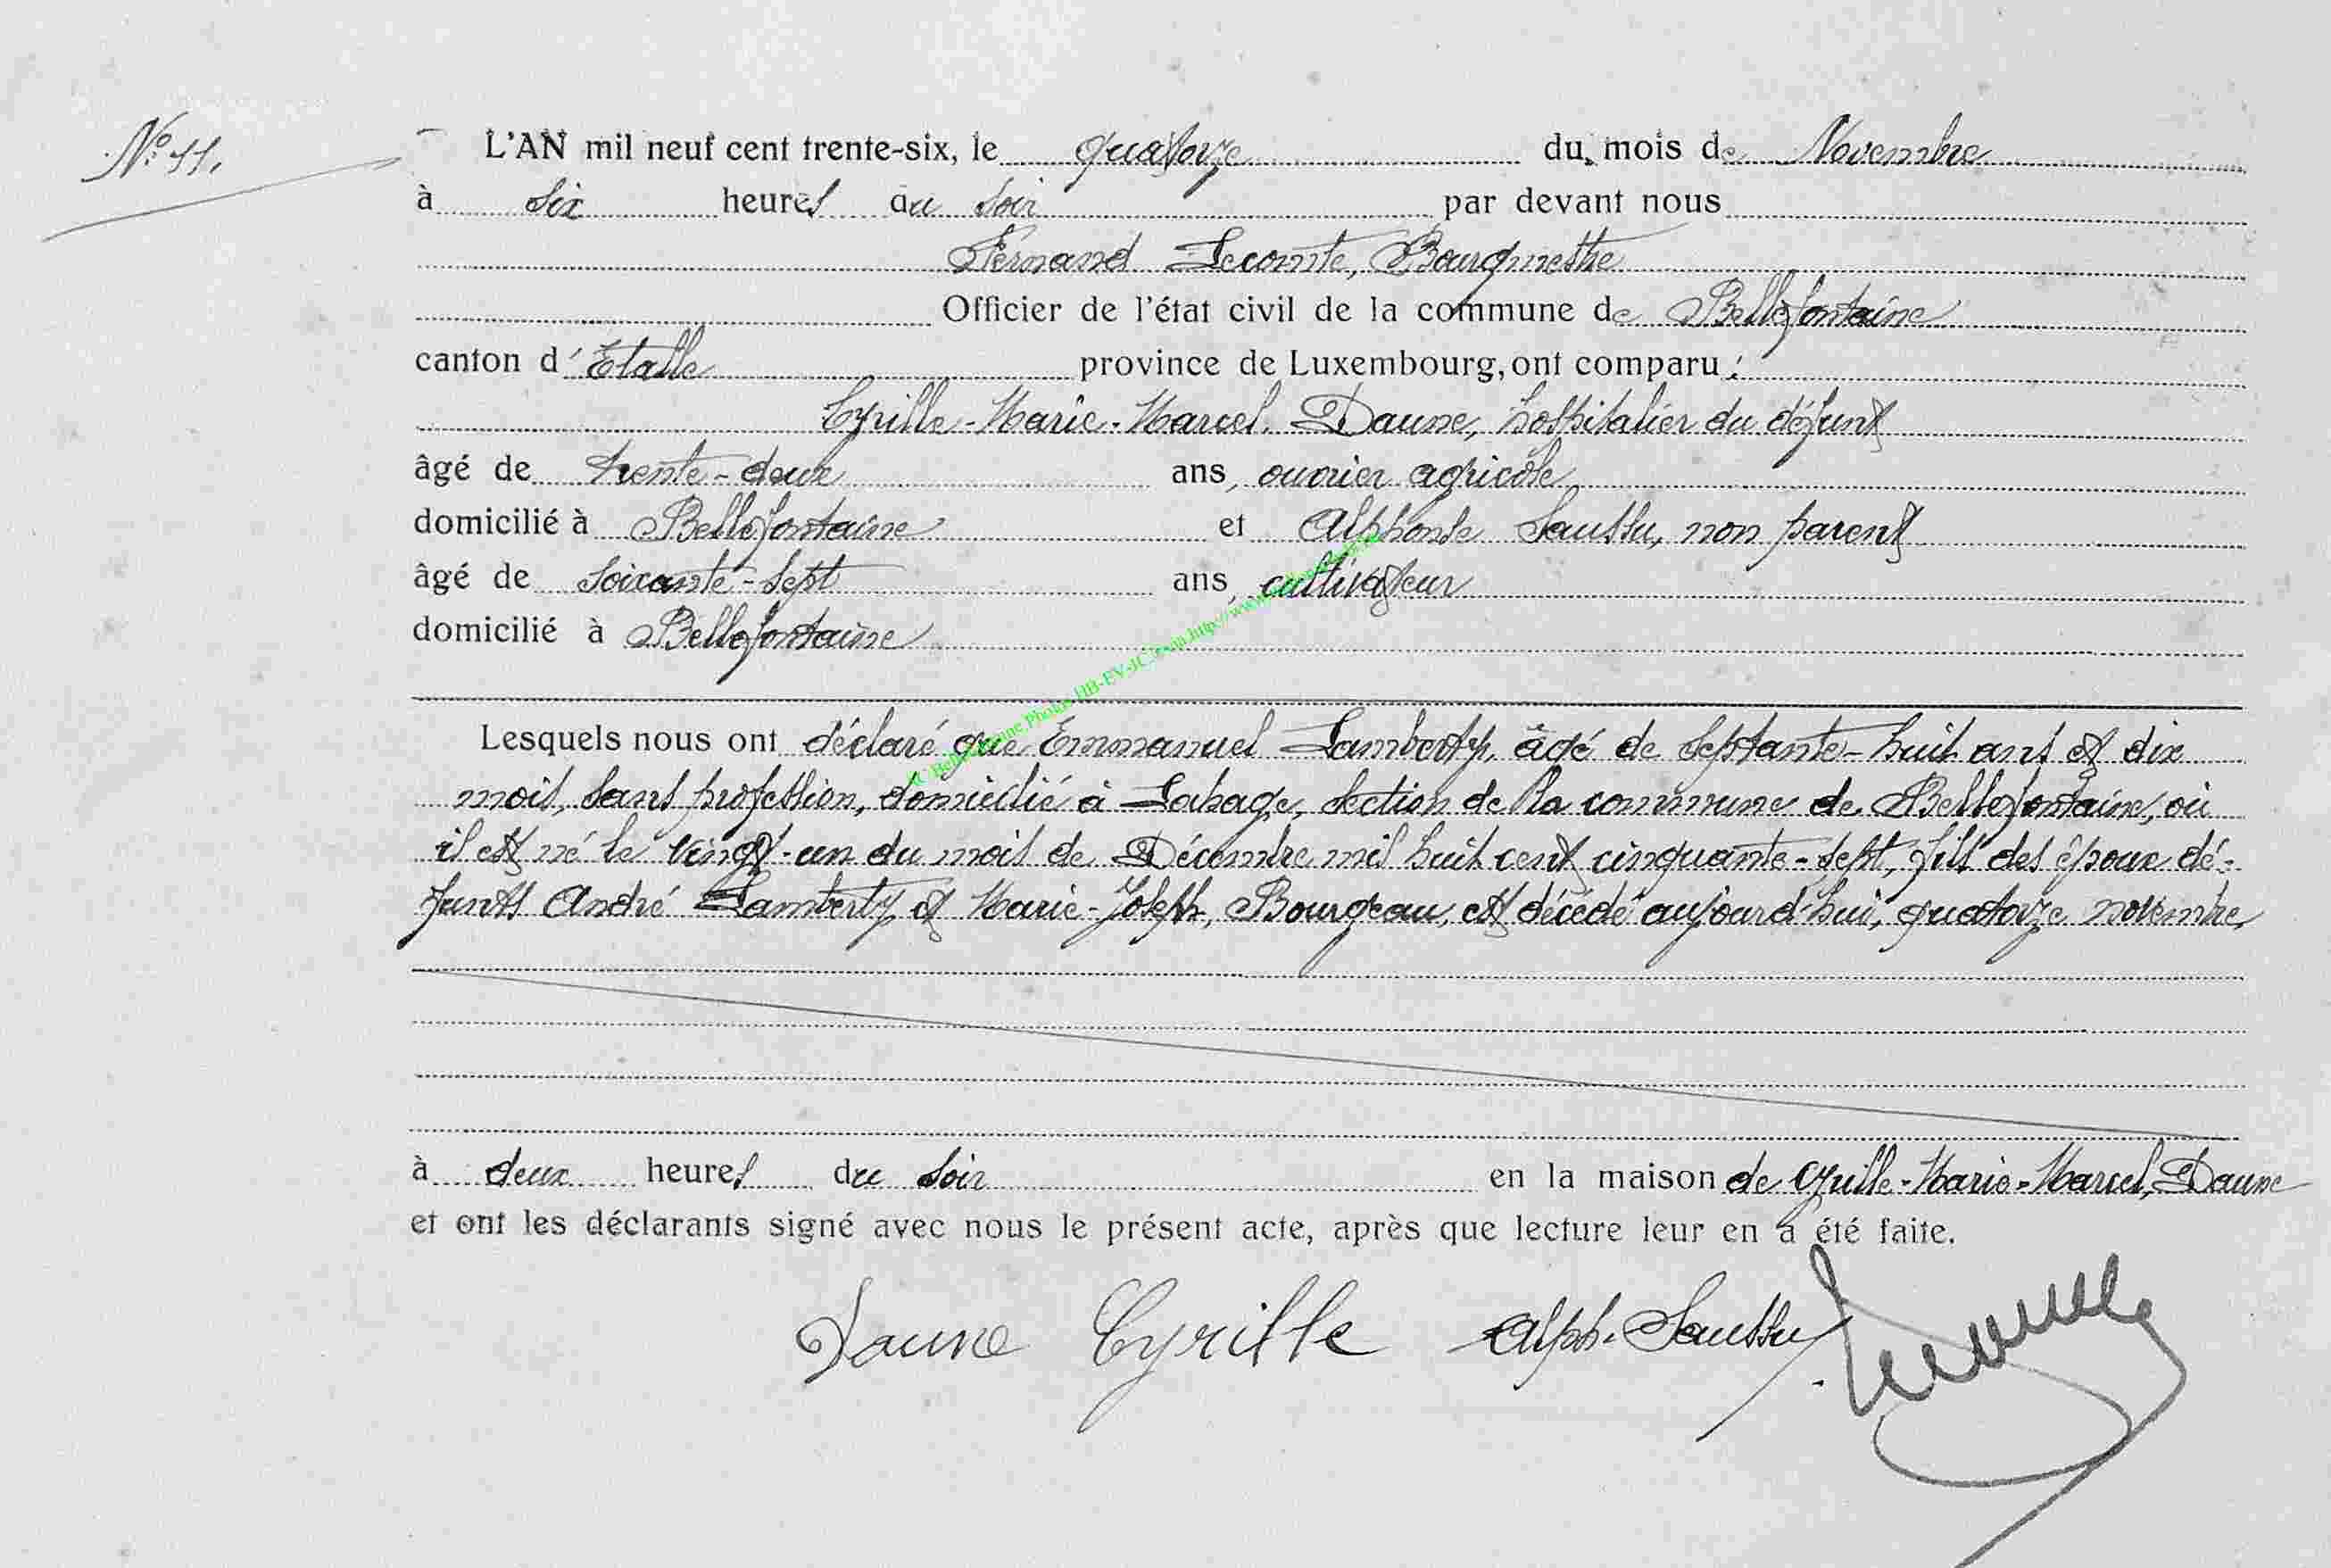 N° 11.
L'AN mil neuf cent trente-six, le quatorze du mois de Novembre
à six heures du soir par devant nous
Fernand Lecomte, Bourgmestre
Officier de l'état civil de la commune de Bellefontaine
canton d'Etalle province de Luxembourg, ont comparu :
Cyrille-Marie-Marcel, Daune, hospitalier du défunt
âgé de trente-deux ans, ouvrier agricole
domicilié à Bellefontaine et Alphonse Saussu, non parent
âgé de soixante-sept ans, cultivateur
domicilié à Bellefontaine
Lesquels nous ont déclaré que Emmanuel Lamberty, âgé de septante-huit ans et dix
mois, sans profession, domicilié à Lahage, section de la commune de Bellefontaine, où
il est né le vingt-un du mois de Décembre mil huit cent cinquante-sept, fils des époux dé-
funts André Lamberty et Marie-Joseph, Bourgeau, est décédé aujourd'hui, quatorze novembre,
à deux heures du soir en la maison de Cyrille-Marie-Marcel, Daune
et ont les déclarants signé avec nous le présent acte, après que lecture leur en a été faite.
Daune Cyrille Alph. Saussu Lecomte